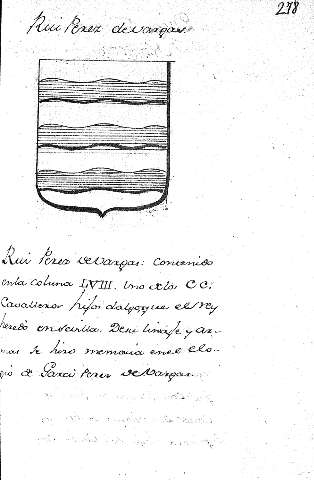 278
Rui Perez de vargas.
Rui Perez de Vargas: Contenido
en la coluna LVIII. Uno de los CC.
Cavalleros hijos dalgo que el rey
heredo en sevilla. De su linaje y ar-
mas se hizo memoria en el elo-
gio de Garci Perez de Vargas.